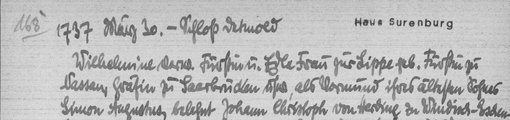 168
1737 März 30. – Schloß Detmold
Haus Surenburg
Wilhelmine verw. Fürstin u. Edle Frau zur Lippe geb. Fürstin zu
Nassau, Gräfin zu Saarbrücken usw. als Vormund ihres ältesten Sohnes
Simon Augustus, belehnt Johann Christoph von Harding zu Windisch-Eschen-